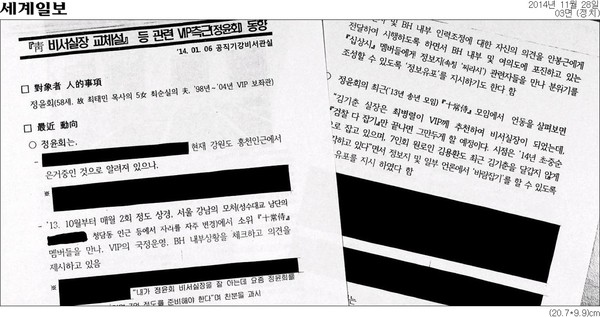 세계일보
2014년 11월 28일
03면 (정치)
『靑 비서실장 교체설』 등 관련 VIP측근(정윤회) 동향
'14. 01. 06 공직기강비서관실
□ 對象者 人的事項
정윤회(58세, 故 최태민 목사의 5女 최순실의 夫, '98년~'04년 VIP 보좌관)
□ 最近 動向
○ 정윤회는,
- 현재 강원도 홍천인근에서
은거중인 것으로 알려져 있으나,
※
- '13. 10월부터 매월 2회 정도 상경, 서울 강남의 모처(성수대교 남단의
청담동 인근 등에서 자리를 자주 변경)에서 소위 『十常侍』
멤버들을 만나, VIP의 국정운영, BH 내부상황을 체크하고 의견을
제시하고 있음
※ "내가 정윤회 비서실장을 잘 아는데 요즘 정윤회를
정도를 준비해야 한다"며 친분을 과시
및 BH 내부 인력조정에 대한 자신의 의견을 안봉근에게
전달하여 시행하도록 하면서 BH 내부 및 여의도에 포진하고 있는
『십상시』 멤버들에게 정보지(속칭 '찌라시') 관련자들을 만나 분위기를
조성할 수 있도록 '정보유포'를 지시하기도 한다 함
○ 정윤회의 최근('13년 송년 모임) 『十常侍』 모임에서 언동을 살펴보면
"김기춘 실장은 최병렬이 VIP께 추천하여 비서실장이 되었는데,
『검찰 다 잡기』만 끝나면 그만두게 할 예정이다. 시점은 '14년 초중순
으로 잡고 있으며, 7인회 원로인 김용환도 최근 김기춘을 달갑지 않게
하고 있다"면서 정보지 및 일부 언론에서 '바람잡기'를 할 수 있도록
유포를 지시 하였다 함
※
(20.7*9.9)cm